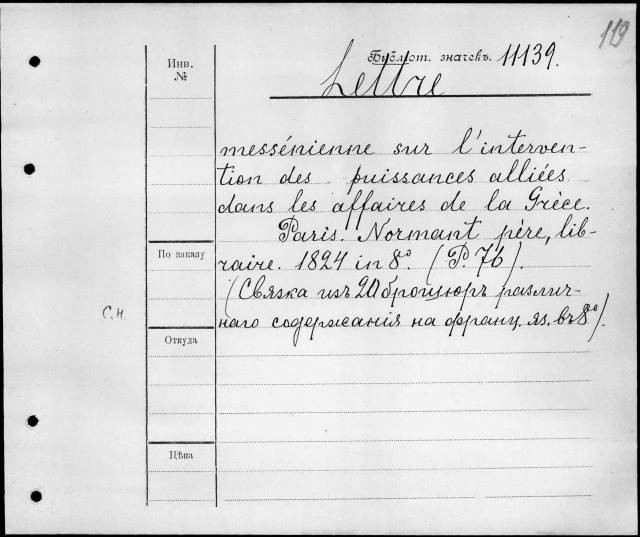 119
Инв.
№
Библіот. значекъ. 11139.
Lettre
messénienne sur l'interven-
tion des puissances alliées
dans les affaires de la Grèce.
Paris. Normant père, lib-
По заказу
raire. 1824 in 8º. (P. 76).
(Связка изъ 20 брошюръ различ-
С.Н.
наго содержанія на франц. яз. въ 8º).
Откуда
Цѣна